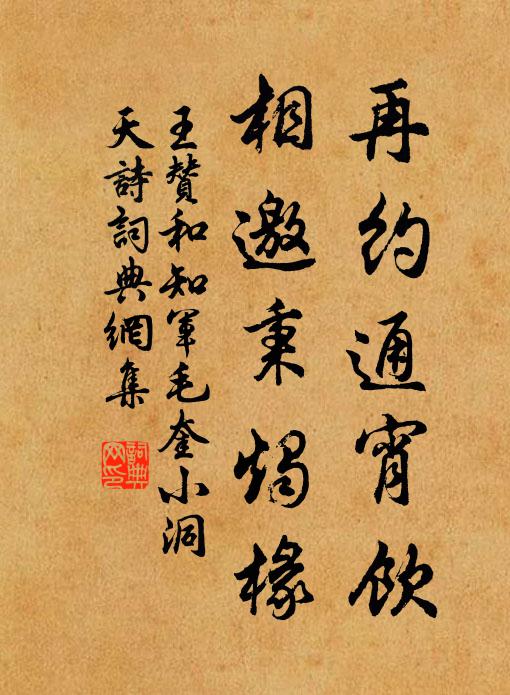 再約通宵飲
相邀秉燭椽
王贊和知軍毛奎小洞
天詩詞典網集
詞典
网印